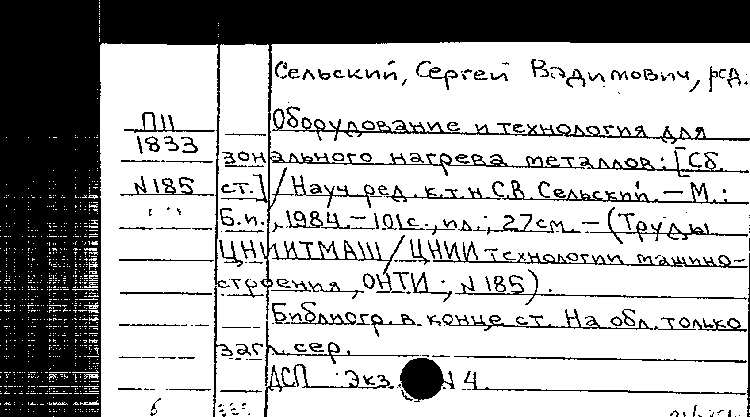 Сельский, Сергей Вадимович, ред.
П11
1833
№185
Оборудование и технология для
зонального нагрева металлов: [Сб.
ст.] / Науч ред. к.т.н. С.В. Сельский. — М.:
Б.и., 1984. — 101с., ил.; 27см. — (Труды
ЦНИИТМАШ / ЦНИИ технологии машино-
строения, ОНТИ; №185).
Библиогр. в конце ст. На обл. только
загл. сер.
ДСП Экз №4.